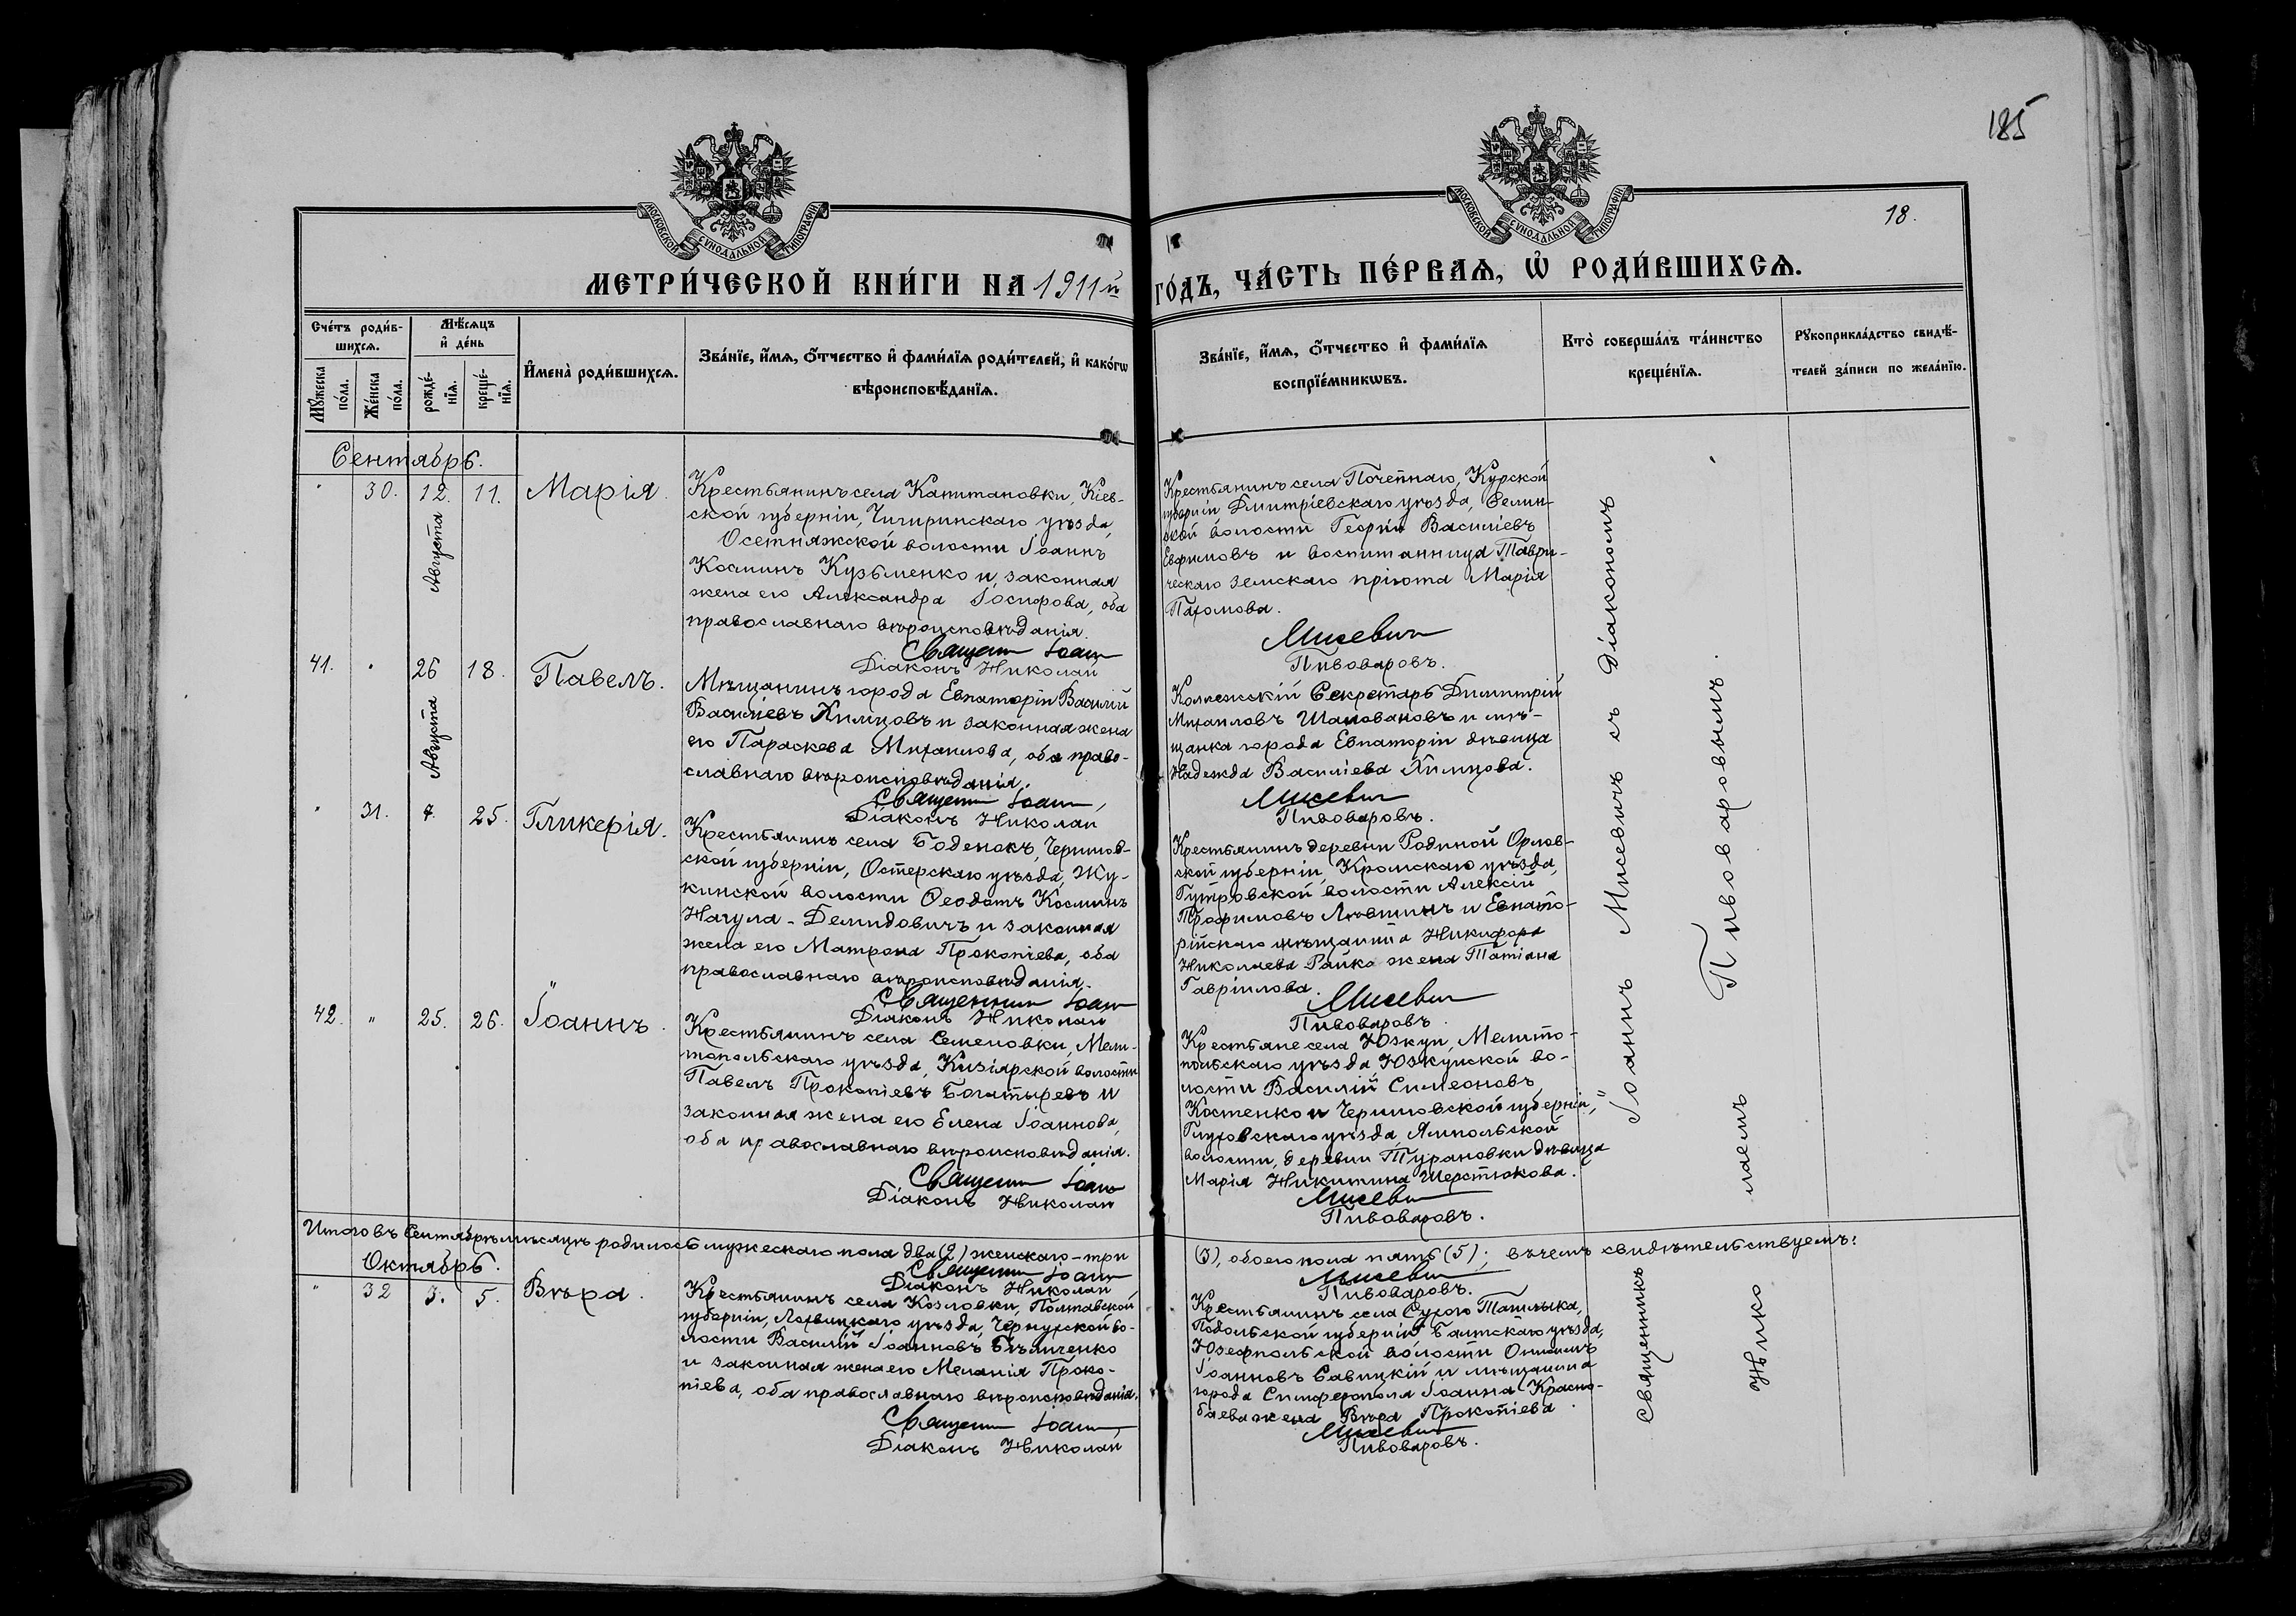 185
МОСКОВСКОЙ СѴНОДАЛЬНОЙ ТИПОГРАФІИ
МОСКОВСКОЙ СѴНОДАЛЬНОЙ ТИПОГРАФІИ
18.
МЕТРИ́ЧЕСКОЙ КНИ́ГИ НА 1911й
ГО́ДЪ, ЧА́СТЬ ПЕ́РВАЯ, Ѡ҆ РОДИ́ВШИХСЯ.
Сче́тъ роди́в-
шихся.
Мѣ́сяцъ
и҆ де́нь
Му́жеска
по́ла.
Же́нска
по́ла.
рожде́-
нїя.
креще́-
нїя.
И҆мена̀ роди́вшихся.
Зва́нїе, и҆́мя, ѻ҆́тчество и҆ фами́лїя роди́телей, и҆ како́гѡ
вѣроисповѣ́данїя.
Зва́нїе, и҆́мя, ѻ҆́тчество и҆ фами́лїя
воспрїе́мникѡвъ.
Кто̀ соверша́лъ та́инство
креще́нїя.
Рꙋкоприкла́дство свидѣ́-
телей за́писи по жела́нїю.
Сентябрь.
" 30. 12. 11. Марія.
Августа
Крестьянинъ села Капитановки, Кіев-
ской губерніи, Чигиринскаго уѣзда,
Осетняжской волости Іоаннъ
Косминъ Кузьменко и законная
жена его Александра Іосифова, оба
православнаго вѣроисповѣданія.
Священ Іоанн
Діаконъ Николай
Крестьянинъ села Почепнаго, Курской
губерніи Дмитріевскаго уѣзда, Селин-
ской волости Георгій Василіевъ
Евфимовъ и воспитанница Таври-
ческаго земскаго пріюта Марія
Пахомова.
Мисевич
Пивоваровъ.
41. " 26 18. Павелъ.
Августа
Мѣщанинъ города Евпаторіи Василій
Василіевъ Химцовъ и законная жена
его Параскева Михаилова, оба право-
славнаго вѣроисповѣданія.
Священ Іоанн
Діаконъ Николай
Коллежскій Секретарь Димитрій
Михаиловъ Шаповаловъ и мѣ-
щанка города Евпаторіи дѣвица
Надежда Василіева Химцова.
Мисевич
Пивоваровъ.
" 31. 4. 25. Гликерія.
Крестьянинъ села Боденокъ, Чернигов-
ской губерніи, Остерскаго уѣзда, Жу-
кинской волости Ѳеодотъ Косминъ
Нагула-Демидовичъ и законная
жена его Матрона Прокопіева, оба
православнаго вѣроисповѣданія.
Священник Іоанн
Діаконъ Николай
Крестьянинъ деревни Родиной Орлов-
ской губерніи, Кромскаго уѣзда,
Гутровской волости Алексій
Трофимовъ Лѣвшинъ и Евпато-
рійскаго мѣщанина Никифора
Николаева Райко жена Татіана
Гавріилова.
Мисевич
Пивоваровъ.
42. " 25. 26. Іоаннъ.
Крестьянинъ села Семеновки, Мели-
топольскаго уѣзда, Кизіярской волости
Павелъ Прокопіевъ Богатыревъ и
законная жена его Елена Іоаннова,
оба православнаго вѣроисповѣданія.
Священ Іоанн
Діаконъ Николай
Крестьяне села Юзкуи, Мелито-
польскаго уѣзда, Юзкуйской во-
лости Василій Симеоновъ
Костенко и Черниговской губерніи,
Глуховскаго уѣзда, Ямпольской
волости, деревни Турановки дѣвица
Марія Никитина Шерстюкова.
Мисевич
Пивоваровъ.
Итого въ Сентябрѣ мѣсяцѣ родилось мужескаго пола два (2) женскаго - три
(3), обоего пола пять (5); въ чемъ свидѣтельствуемъ:
Священ Іоанн
Діаконъ Николай
Мисевич
Пивоваровъ.
Октябрь.
" 32 3. 5. Вѣра.
Крестьянинъ села Козловки, Полтавской
губерніи, Лохвицкаго уѣзда, Чернухской во-
лости Василій Іоанновъ Бѣличенко
и законная жена его Меланія Проко-
піева, оба православнаго вѣроисповѣданія.
Священ Іоанн
Діаконъ Николай
Крестьянинъ села Сухого Ташлыка,
Подольской губерніи Балтскаго уѣзда,
Юзефпольской волости
Іоанновъ Савицкій и мѣщанина
города Симферополя Іоанна Красно-
баева жена Вѣра Прокопіева.
Мисевич
Пивоваровъ.
Священникъ Іоаннъ Мисевичъ съ Діакономъ
Николаемъ Пивоваровымъ.